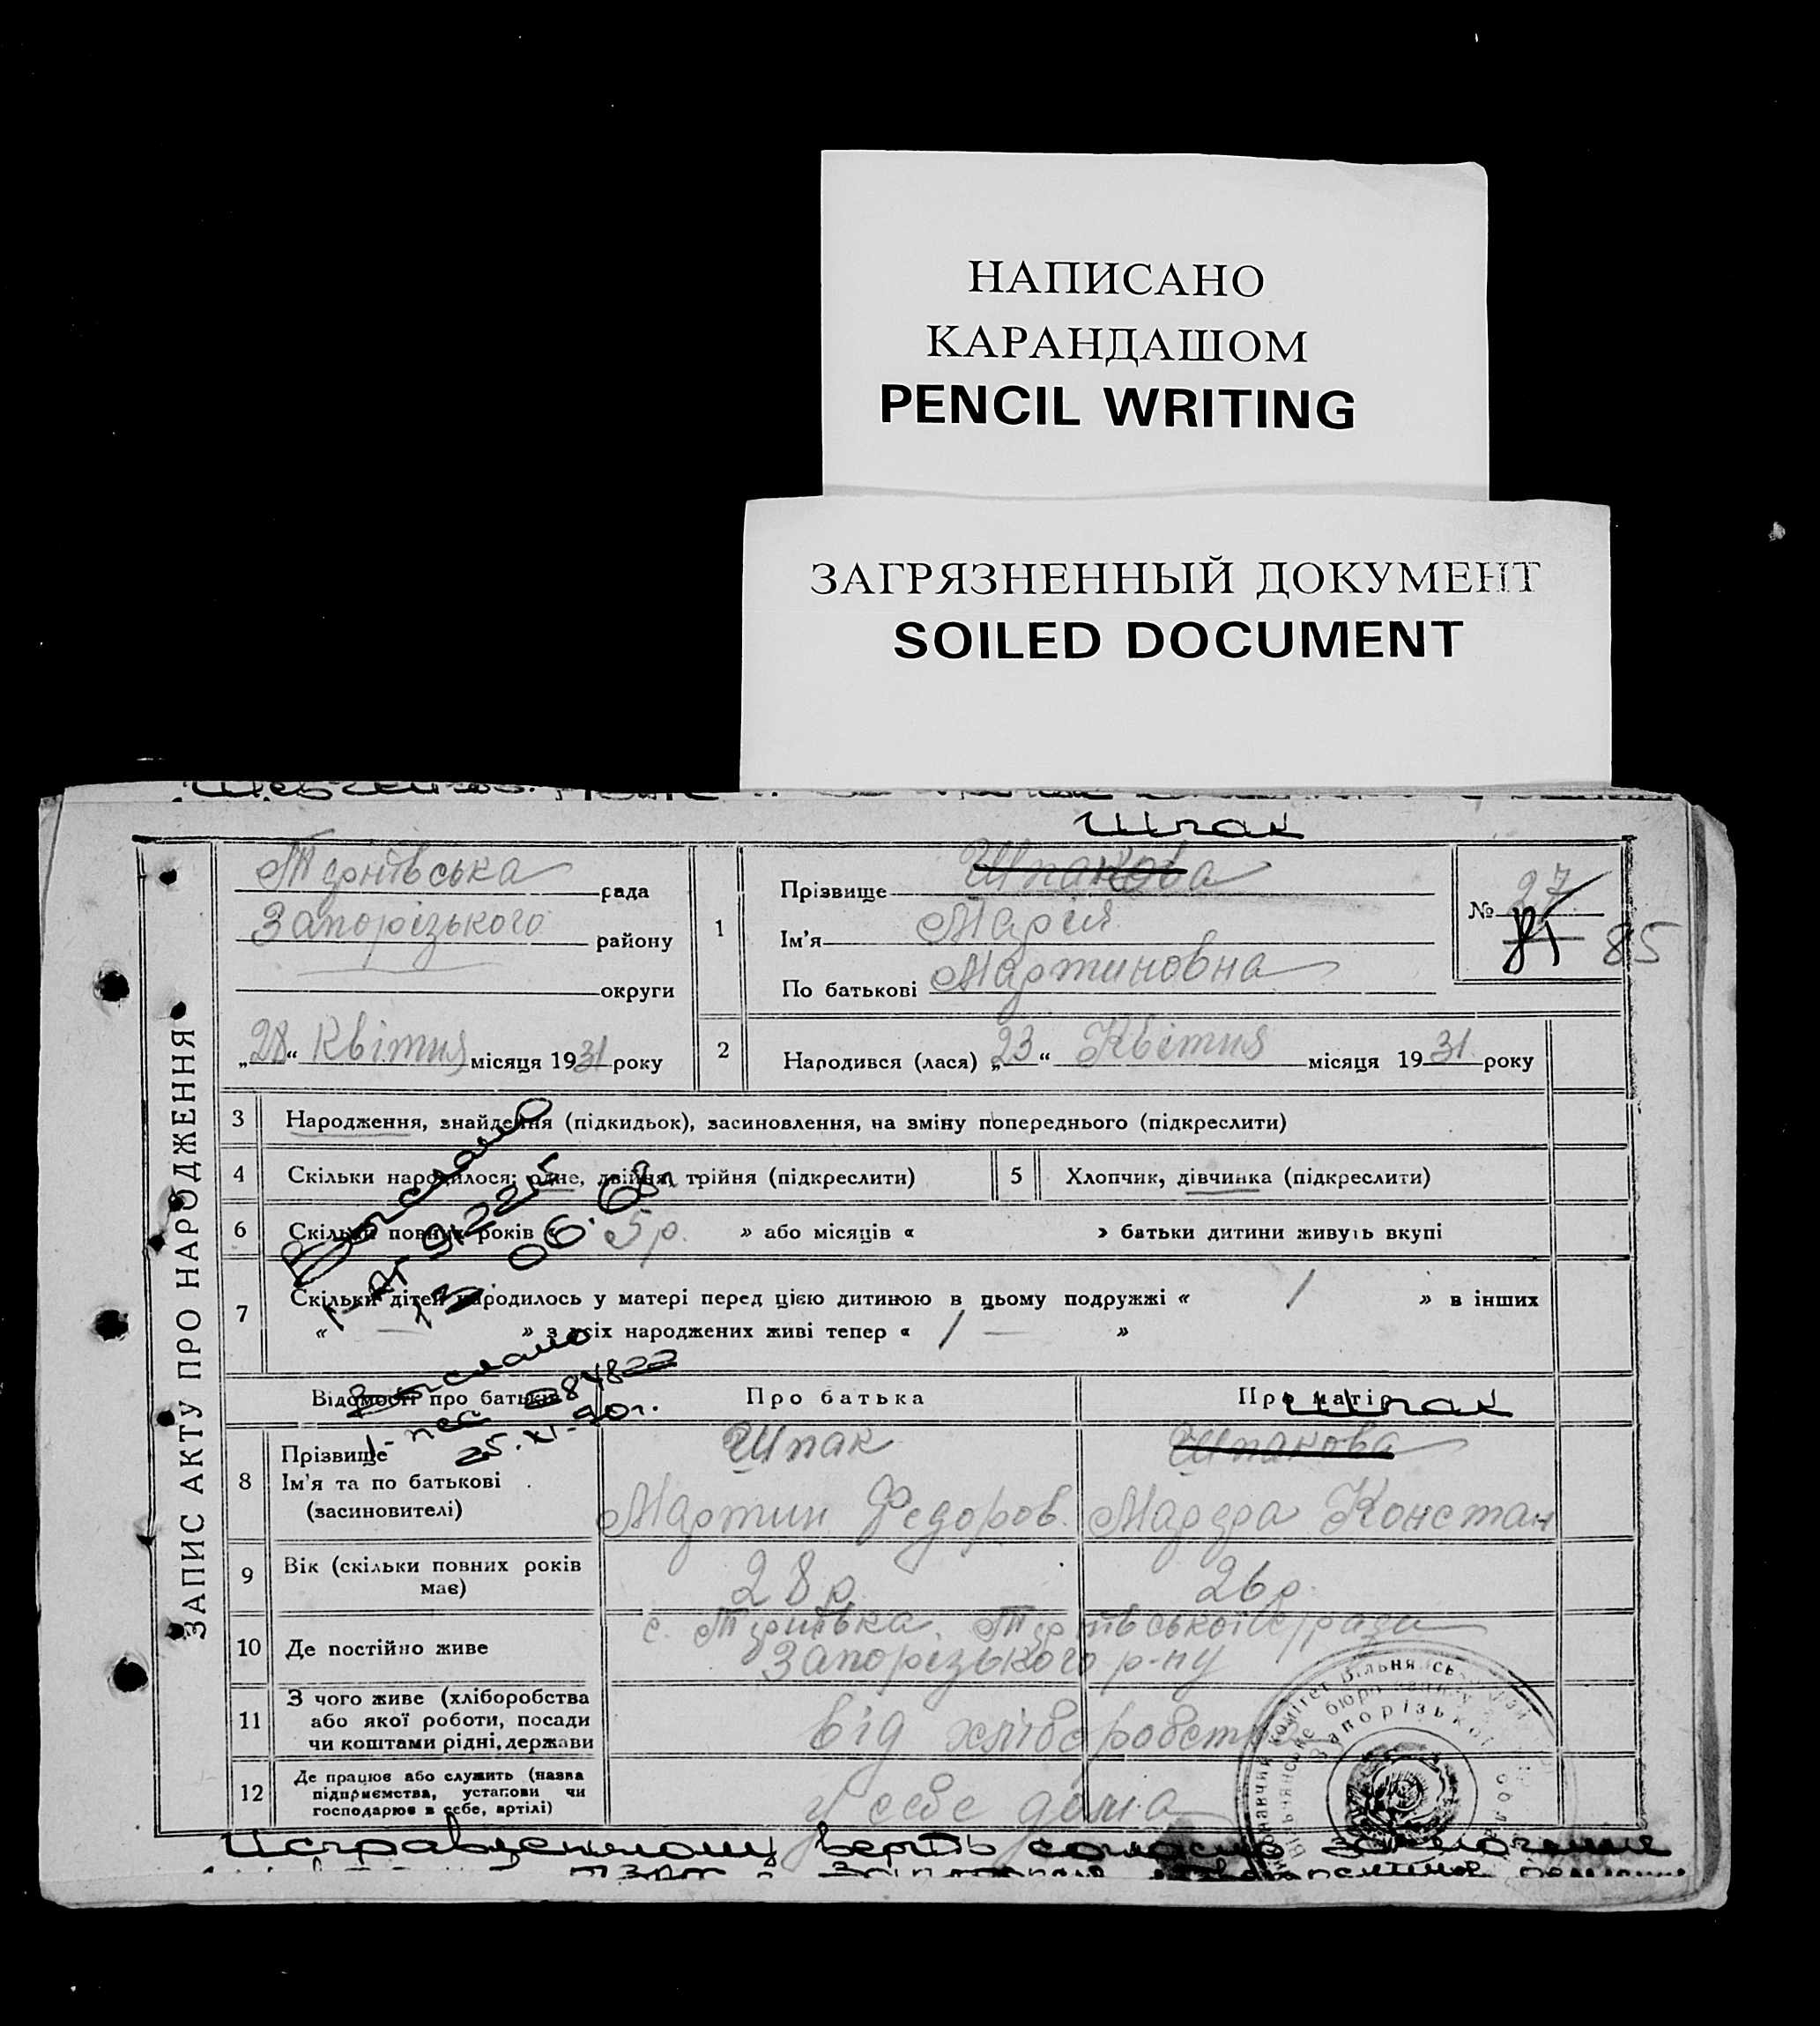 НАПИСАНО
КАРАНДАШОМ
PENCIL WRITING
ЗАГРЯЗНЕННЫЙ ДОКУМЕНТ
SOILED DOCUMENT
Шпак
ЗАПИС АКТУ ПРО НАРОДЖЕННЯ
Тернівська рада
Запорізького району
округи
„28“ Квітня місяця 1931 року
1
Прізвище Шпакова
Ім'я Марія
По батькові Мартиновна
№ 27
85
2
Народився (лася) „23“ Квітня місяця 1931 року
3 Народження, знайдення (підкидьок), засиновлення, на зміну попереднього (підкреслити)
4 Скільки народилося: одне, двійня, трійня (підкреслити)
5 Хлопчик, дівчинка (підкреслити)
6 Скільки повних років « 5 р. » або місяців « » батьки дитини живуть вкупі
7 Скільки дітей народилось у матері перед цією дитиною в цьому подружжі « 1 » в інших
« — » з усіх народжених живі тепер « 1 — »
Выслано
06.68г.
Выслано
084822
25.XI-90г.
Відомості про батьків
Про батька
Про матір
Шпак
8 Прізвище
Ім'я та по батькові
(засиновителі)
Шпак
Мартин Федоров.
Шпакова
Константин
9 Вік (скільки повних років має)
28 р.
26 р.
10 Де постійно живе
с. Тернівка, Тернівської с/ради
Запорізького р-ну
11 З чого живе (хліборобства
або якої роботи, посади
чи коштами рідні, держави
від хліборобств
12 Де працює або служить (назва
підприємства, установи чи
господарює в себе, артілі)
у себе дома
Запорізької
Исправленному верить согласно заключения